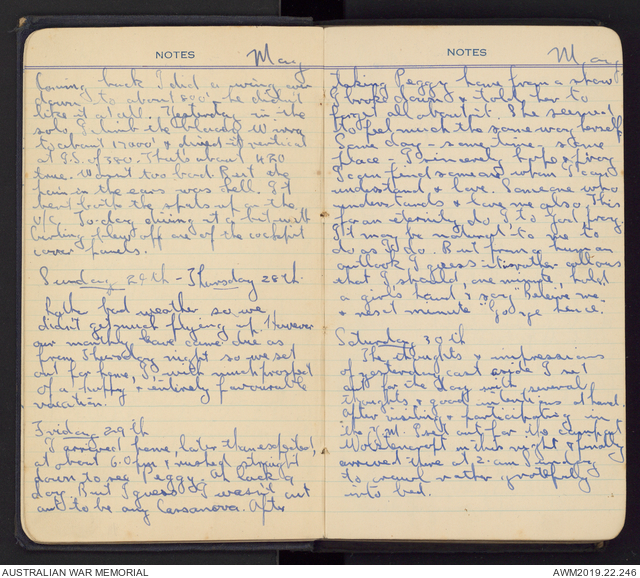 NOTES
May
coming back I did a wing over
down to about 800', he didn't
like it at all. Yesterday in the
solo, I climb the bloody Wirra
to about 17000' & dived it vertical
at I.S. of 380. That's about 420
true. Wasn't too bad. But the
pain in the ears was hell. I
bent both the spats up on the
U/C. Today diving it a bit with
flew off one of the cockpit
cover panels.
Sunday 24th - Thursday 28th.
bad weather so we
didn't get much flying in. However
our monthly leave came due as
from Thursday night so we set
out for home, I, with much prospect
of a happy & entirely favourable
vacation.
Friday 29th
I arrived home, later than expected,
at about 6.0 pm & rushed straight
down to see Peggy. Ah lack a
day. But I guess I wasn't cut
out to be any Cassanova. After
NOTES
May
taking Peggy home from a show
I broke down & told her to
forget all about it. She seemed
to feel much the same way herself.
Some day - some time, some
place - I sincerely hope & pray
I can find someone whom I can
understand & love. Someone who
understands & loves me also. This
for an eternity do I to God pray.
It may be natural to me to
do as I do. But from a human
outlook I guess its rather callous
that I should, one minute, hold
a girls hand & say believe me
& next minute "Go dge hence.
Saturday 30th
The thoughts & impressions
of yesterday cast aside I set
out for the day with several
thoughts & good intentions at hand.
After visiting & participating in
the I set out for its comfort
within night & finally
arrived there at 2. am Sunday
to crawl rather gratefully
into bed.
AUSTRALIAN WAR MEMORIAL
AWM2019.22.246